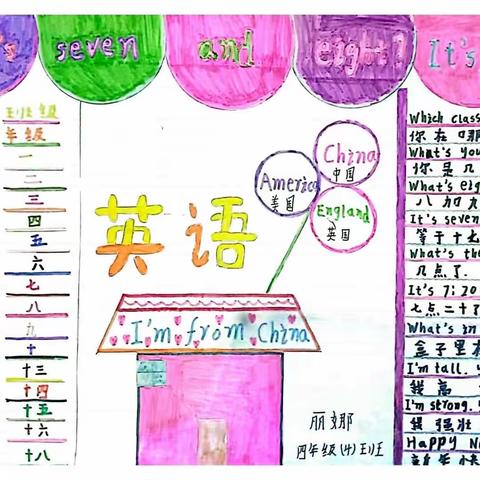 seven
and
eight?
It's
班级
年级
一
二
三
四
五
六
七
八
九
十
十三
十四
十五
十六
十八
英语
America
美国
China
中国
England
英国
I'm from China
丽娜
四年级(4)班
Which class
你在哪
What's you
你是几
What's eig
八加九
It's seven
等于十七
What's the
几点了.
It's 7:20
七点二十了
What's in
盒子里有
I'm tall.
我高
I'm strong.
我强壮
Happy N
新年快